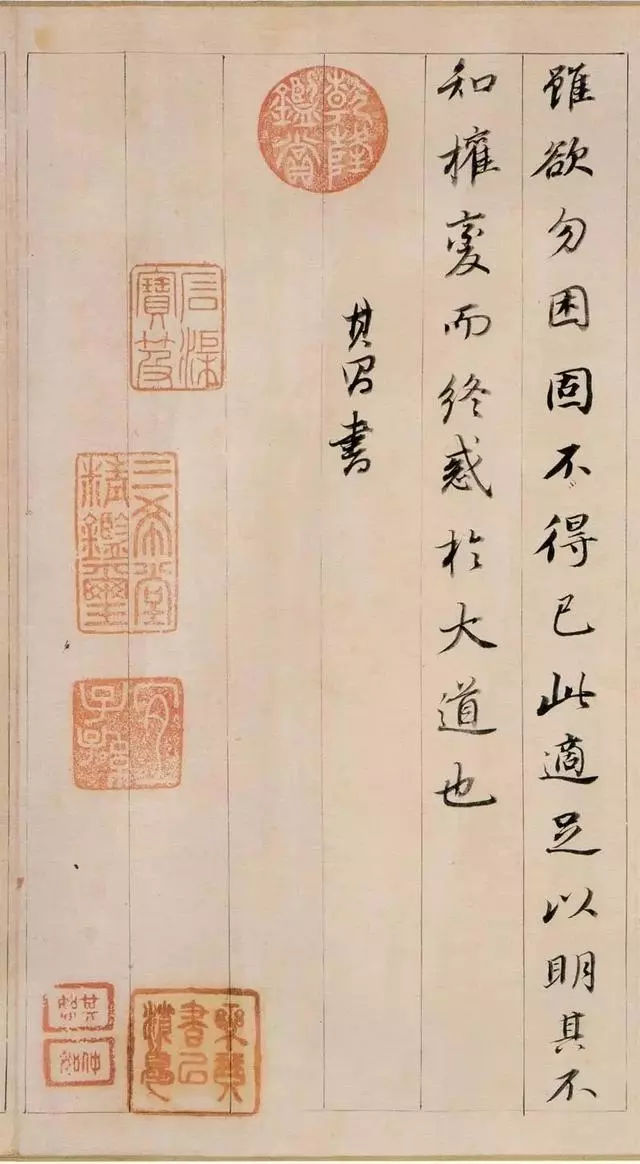 雖欲勿困固不得已此適足以明其不
知權變而終惑於大道也
其昌書
乾隆鑑賞
石渠寶笈
三希堂精鑑璽
宜子孫
樂琴書以消憂